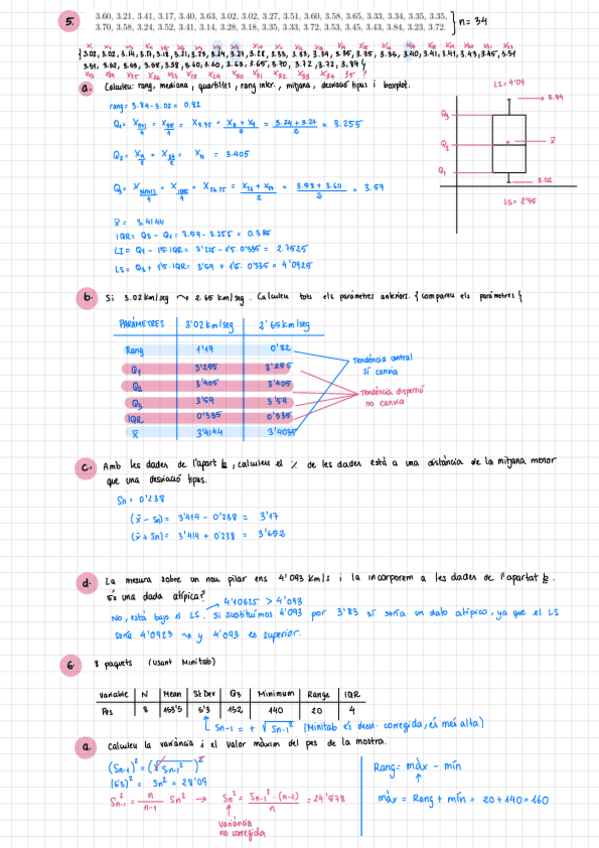 5. 3.60, 3.21, 3.41, 3.17, 3.40, 3.63, 3.02, 3.02, 3.27, 3.51, 3.60, 3.58, 3.65, 3.35, 3.33, 3.34, 3.35, 3.35,
3.70, 3.58, 3.24, 3.52, 3.41, 3.14, 3.28, 3.18, 3.35, 3.33, 3.72, 3.53, 3.45, 3.43, 3.84, 3.23, 3.72.
n = 34
a. Calculeu: rang, mediana, quartilles, rang inter., mitjana, desviació tipus i boxplot.
rang = 3.84 - 3.02 = 0.82
= 3.255
= 3.405
= 3.59
x̄ = 3.4144
IQR = Q3 - Q1 = 3.59 - 3.255 = 0.335
= 2.7525
= 4'0925
LS = 4'09
3.84
Q3
Q2
x̄
Q1
3.02
LS = 2'75
b. Si 3.02 km/seg ⤳ 2.65 km/seg. Calculeu tots els paràmetres anteriors. { compareu els paràmetres {
PARÁMETRES 3'02 km/seg 2'65 km/seg
Rang 1'19 0'82
Q1 3'255 3'255
Q2 3'405 3'405
Q3 3'59 3'59
IQR 0'335 0'335
x̄ 3'4144 3'4035
Tendència central
sí canvia
Tendència dispersió
no canvia
c. Amb les dades de l'apart b, calculeu el % de les dades està a una distància de la mitjana menor
que una desviació tipus.
Sn = 0'238
(x̄ - Sn) = 3'414 - 0'238 = 3'17
(x̄ + Sn) = 3'414 + 0'238 = 3'652
d. La mesura sobre un nou pilar ens 4'093 km/s i la incorporem a les dades de l'apartat b.
És una dada atípica?
4'10625 > 4'093
No, está bajo el LS. Si sustituimos 4'093 por 3'83 sí sería un dato atípico, ya que el LS
sería 4'0923 ⤳ y 4'093 es superior.
6. 8 paquets (usant Minitab)
Variable N Mean St Dev Q3 Minimum Range IQR
Pes 8 153'5 5'3 152 140 20 4
Sn-1 = + √Sn-1² (Minitab és desv. corregida, és més alta)
a. Calculeu la variància i el valor màxim del pes de la mostra.
(Sn-1)² = (√Sn-1²)²
(5'3)² = Sn² = 28'09
Sn-1² = n/n-1 Sn² → Sn² = Sn-1² · (n-1)/n = 24'578
variància
no corregida
Rang = màx - mín
màx = Rang + mín = 20 + 140 = 160